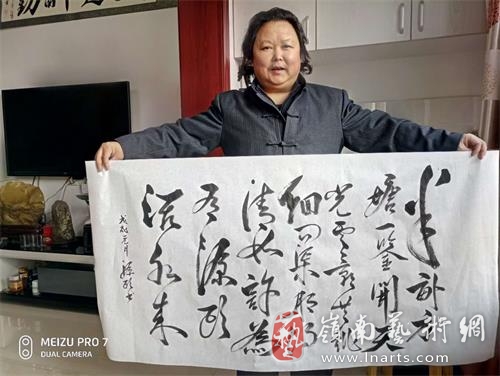 半畝方
塘一鑒開天
光雲影共徘
徊问渠那得
清如許為
有源頭
活水来
戊戌元月
书
MEIZU PRO 7
DUAL CAMERA
藝
嶺南藝術網
www.lnarts.com